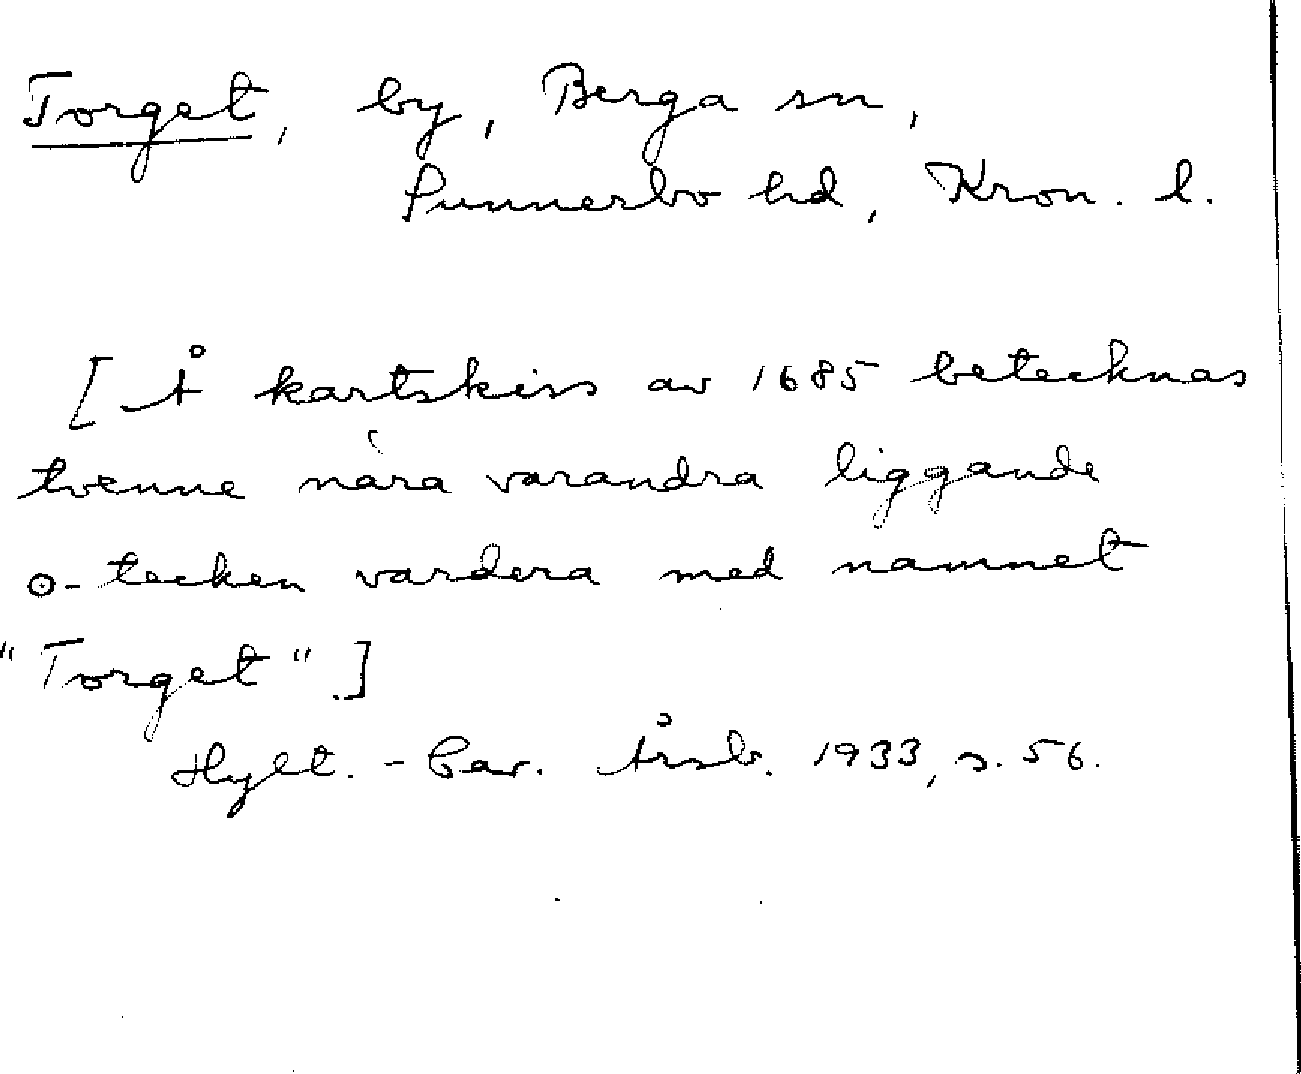 Torget, by, Berga sn,
Sunnerbo hd, Kron. l.
[Å kartskiss av 1685 betecknas
tvenne nära varandra liggande
⊙-tecken vardera med namnet
"Torget".]
Hylt.-Cav. Årsb. 1933, s. 56.